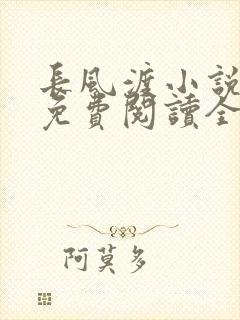 長風渡小說
免費閱讀全
阿莫多